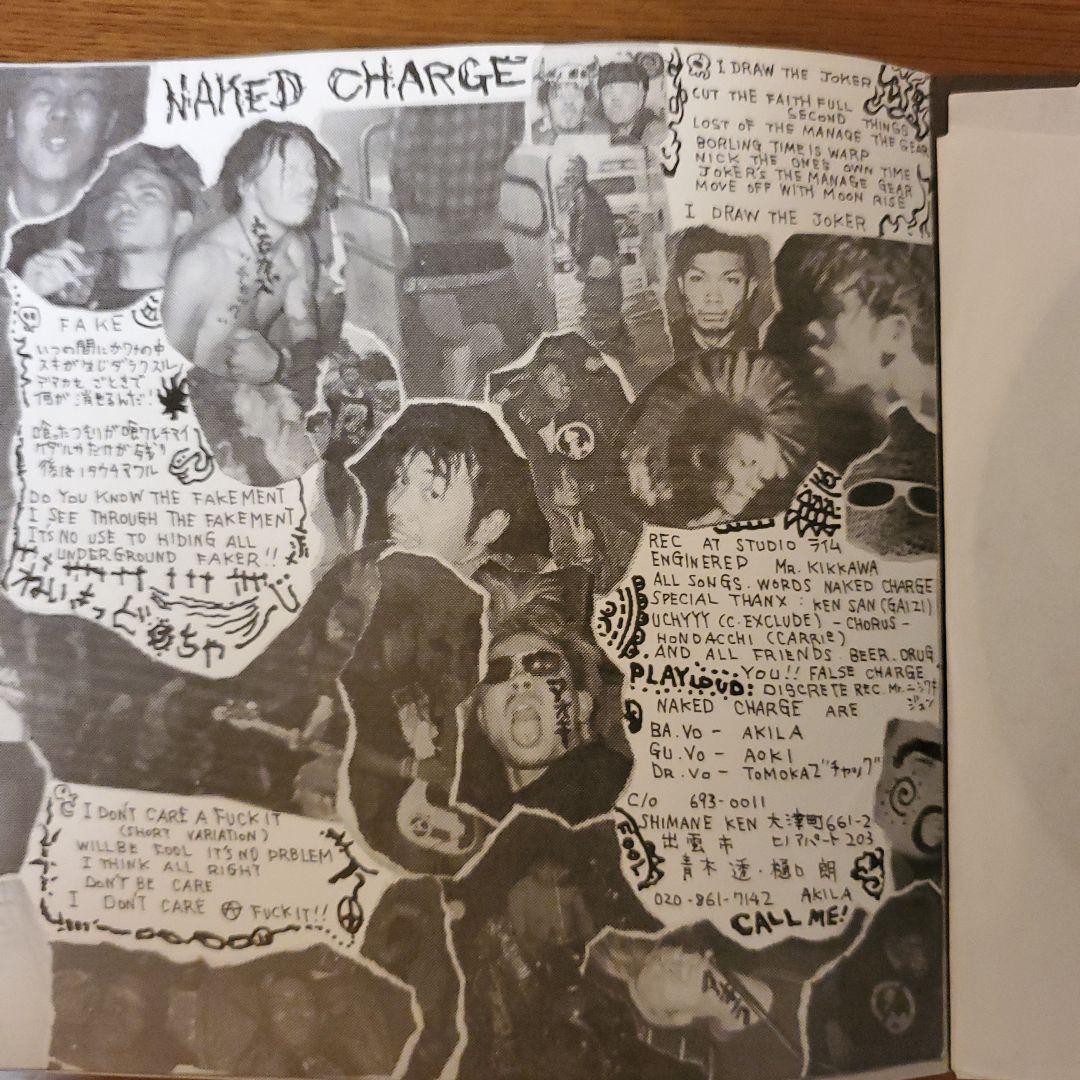 NAKED CHARGE
I DRAW THE JOKER
CUT THE FAITH FULL
SECOND THINGS
LOST OF THE MANAGE THE GEAR
BORLING TIME IS WARP
NICK THE ONE'S OWN TIME
JOKER'S THE MANAGE GEAR
MOVE OFF WITH MOON RISE
I DRAW THE JOKER
FAKE
いつの間にかワナの中
スキが生じダラクスル
アマカセ ごときで
何が消せるんだ!
喰ったつもりが喰ワレチマイ
ケダルサだけが残り
後はノタウチマワル
DO YOU KNOW THE FAKEMENT
I SEE THROUGH THE FAKEMENT
ITS NO USE TO HIDING ALL
UNDERGROUND FAKER!!
REC AT STUDIO
ENGINERED MR. KIKKAWA
ALL SONGS. WORDS NAKED CHARGE
SPECIAL THANX : KEN SAN (GAIZI)
UCHYYY (C.C. EXCLUDE) - CHORUS -
HONDACCHI (CARRIE)
AND ALL FRIENDS. BEER. DRUG.
YOU!! FALSE CHARGE
PLAY LOUD: DISCRETE REC. Mr.
NAKED CHARGE ARE
BA.VO - AKILA
GU.VO - AOKI
DR.VO - TOMOKAZ "チャック"
C/O 693-0011
SHIMANE KEN 大津町661-2
出雲市 ヒノアパート203
青木 透・樋口 朗
020-861-7142 AKILA
CALL ME!
FOOL
I DON'T CARE A FUCK IT
(SHORT VARIATION)
WILL BE FOOL IT'S NO PRBLEM
I THINK ALL RIGHT
DON'T BE CARE
I DONT CARE Ⓐ FUCK IT!!